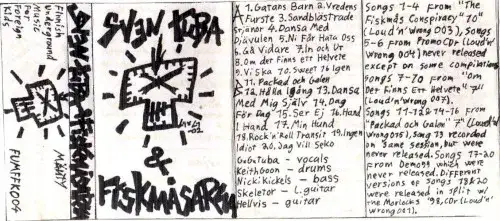 Finnish
Underground
Music
For
Foreign
Kids
MÄNTY
FUMFFK004
SVEN TUBA & FISKMÅSARNA
SVEN TUBA
&
FISKMÅSARNA
A 1. Gatans Barn 2. Vredens
Furste 3. Sandblästrade
Stjänor 4. Dansa Med
Djävulen 5. Ni Får Hata Oss
6. Gå Vidare 7. In och Ut
8. Om der Finns ett Helvete
9. Vi Ska 10. Sweet 16 Igen
B 11. Packad och Galen
12. Hålla Igång 13. Dansa
Med Mig Själv 14. Dag
För Dag 15. Ser Ej 16. Hand
I Hand 17. Min Hand
18. Rock'n'Roll Transit 19. Ingen
Idiot 20. Dag Vill Sova
GubbTuba - vocals
Keith Goon - drums
Nicki Nickels - bass
Skeletor - l. guitar
Hellvis - guitar
Songs 1-4 from "The
Fiskmås Conspiracy 7"
(Loud'n'Wrong 003), Songs
5-6 from PromoCDr (Loud'n'
Wrong 004) never released
except on some compilations
Songs 7-10 from "Om
Det Finns Ett Helvete" 7"
(Loud'n'Wrong 007).
Songs 11-12 & 14-16 from
"Packad och Galen" 7" (Loud'n'
Wrong 015), song 13 recorded
on same session, but were
never released. Songs 17-20
from Demos which were
never released. Different
versions of songs 18 & 20
were released in split w/
the Morlocks '98, CDr (Loud'n'
Wrong 001).